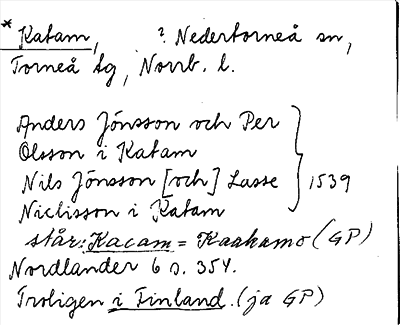 * Katam, ? Nedertorneå sn,
Torneå tg, Norrb. l.
Anders Jönsson och Per
Olsson i Katam
Nils Jönsson [och] Lasse } 1539
Niclisson i Katam
står: Kacam = Kaakamo (GP)
Nordlander 6 s. 354.
Troligen i Finland. (ja GP)